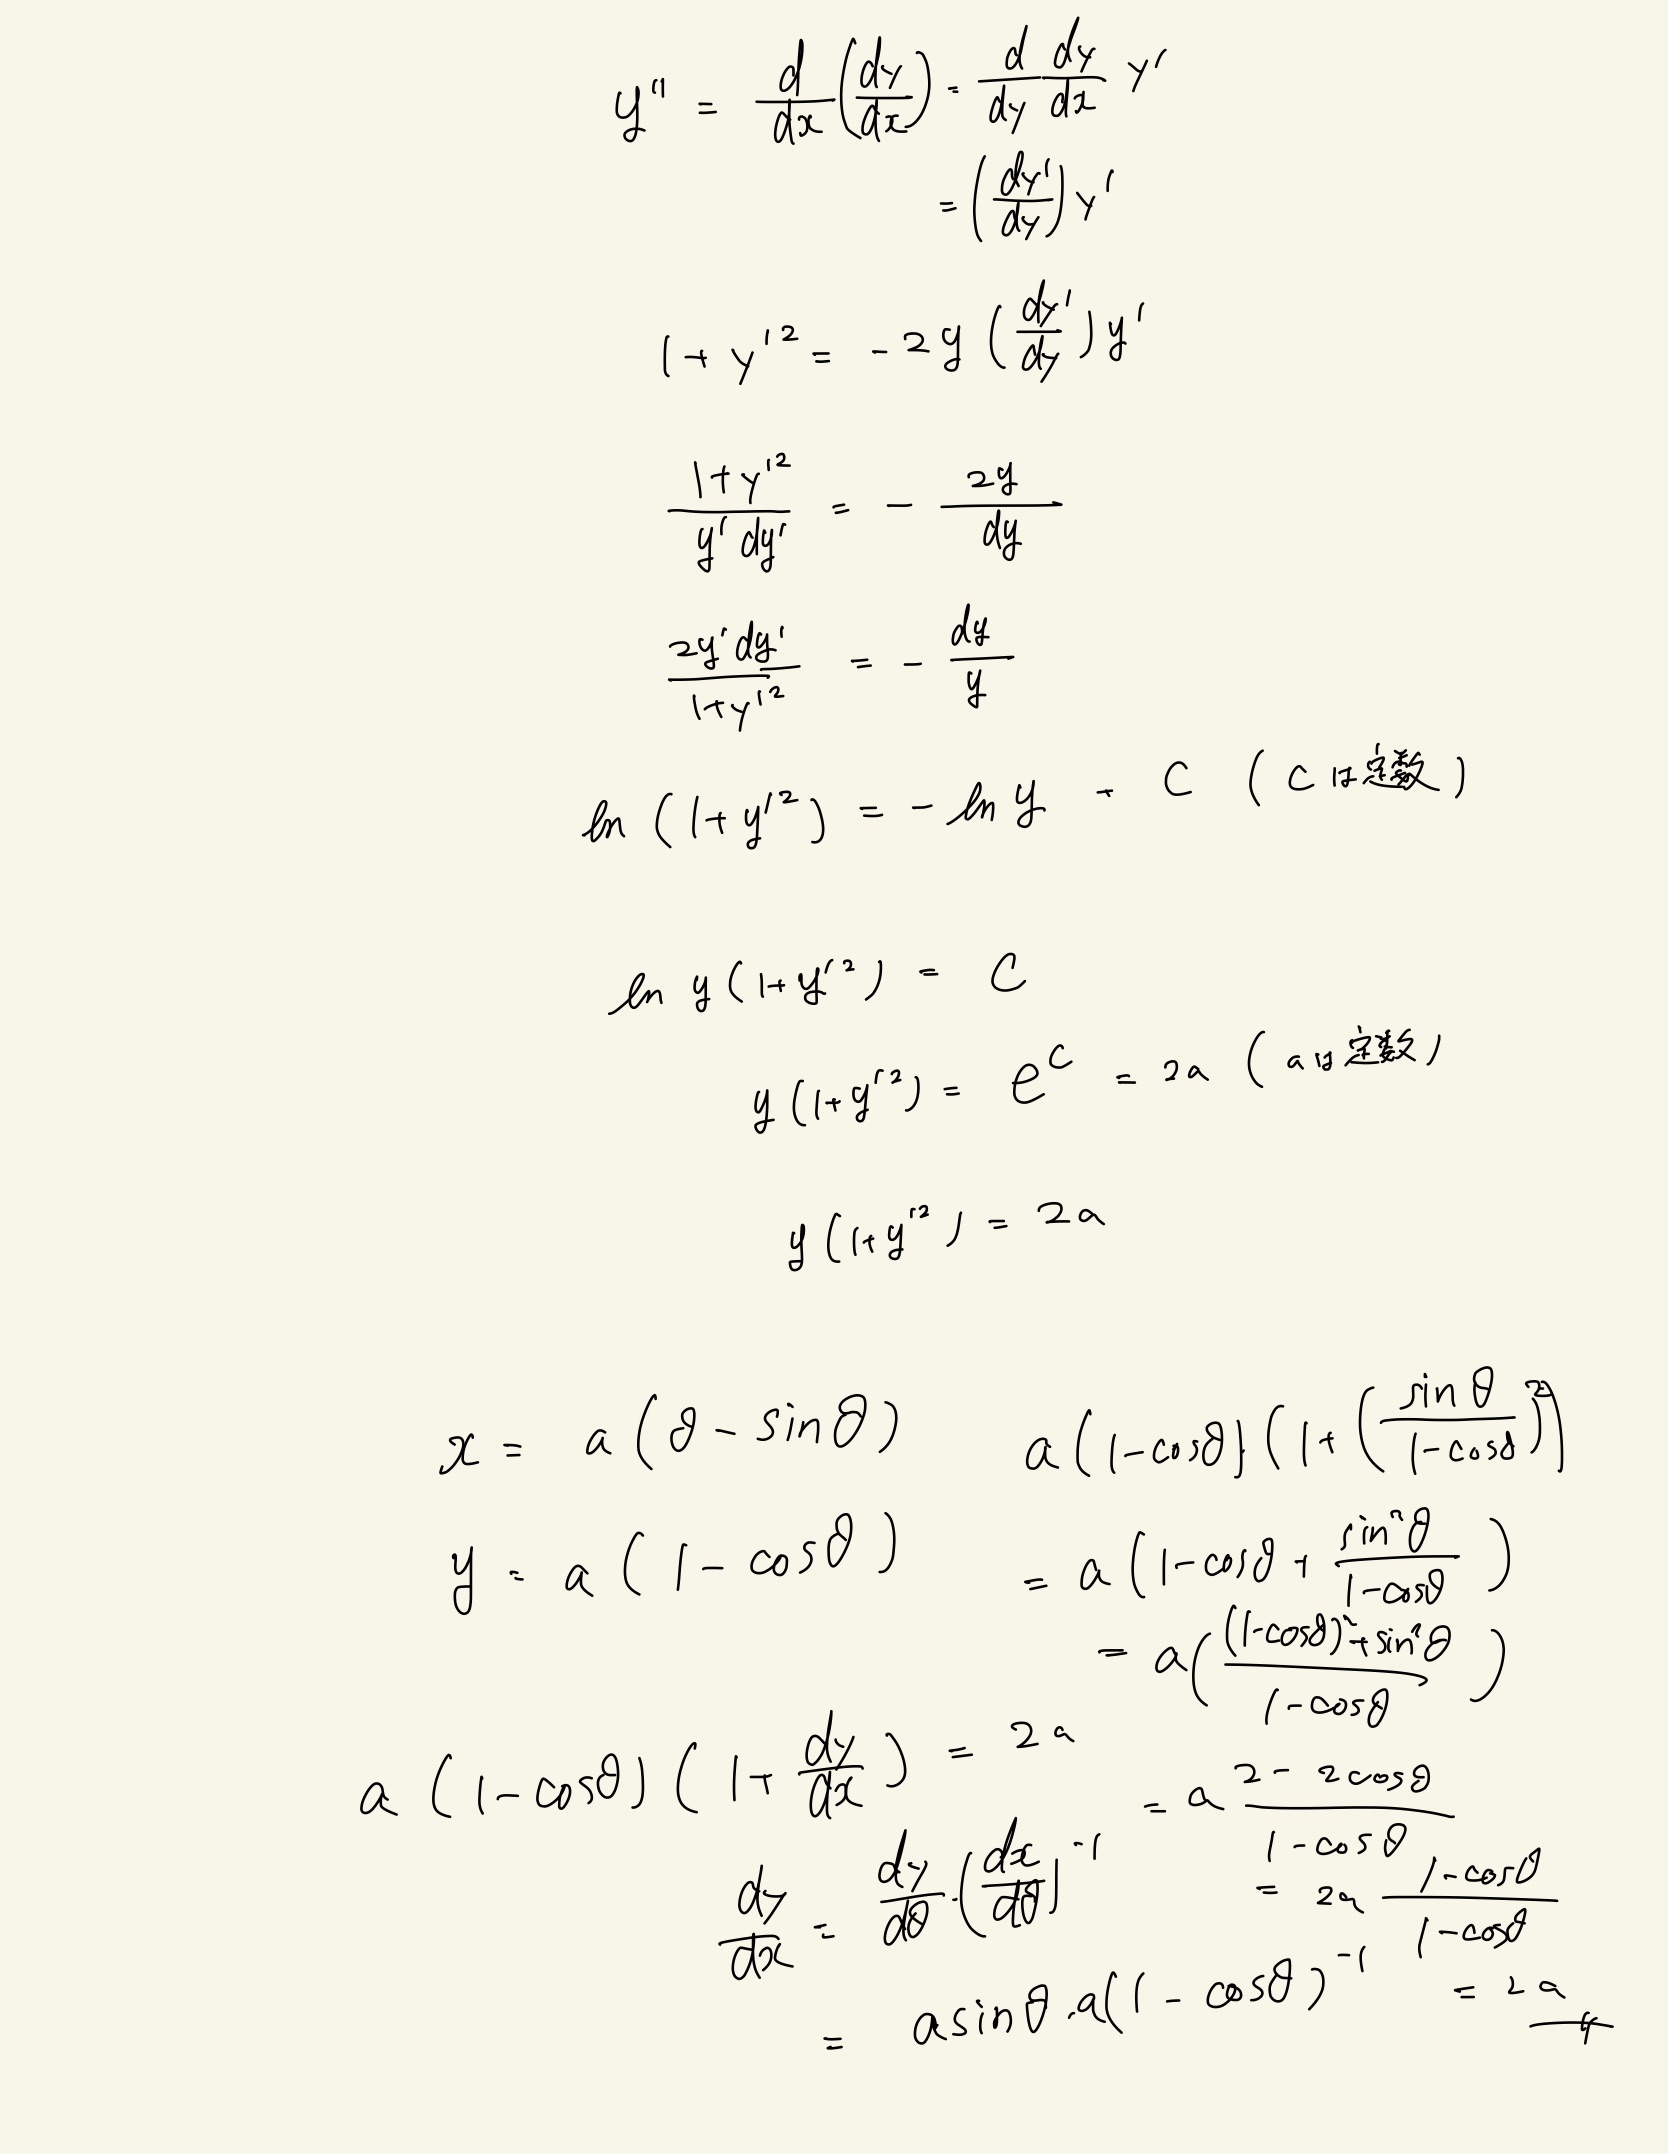 y'' = d/dx (dy/dx) = d/dy dy/dx y'
= (dy'/dy) y'
1 + y'² = -2y (dy'/dy) y'
(1 + y'²)/(y' dy') = - 2y/dy
2y' dy'/(1+y'²) = - dy/y
ln (1 + y'²) = - ln y + C (Cは定数)
ln y (1+y'²) = C
y (1+y'²) = e^C = 2a (aは定数)
y (1+y'²) = 2a
x = a (θ - sinθ)
y = a (1 - cosθ)
a (1-cosθ) (1 + dy/dx) = 2a
dy/dx = dy/dθ · (dx/dθ)^-1
= a sinθ · a(1 - cosθ)^-1
a (1-cosθ) (1 + (sinθ/(1-cosθ))²)
= a (1-cosθ + sin²θ/(1-cosθ))
= a (((1-cosθ)² + sin²θ)/(1-cosθ))
= a (2 - 2cosθ)/(1-cosθ)
= 2a (1-cosθ)/(1-cosθ)
= 2a